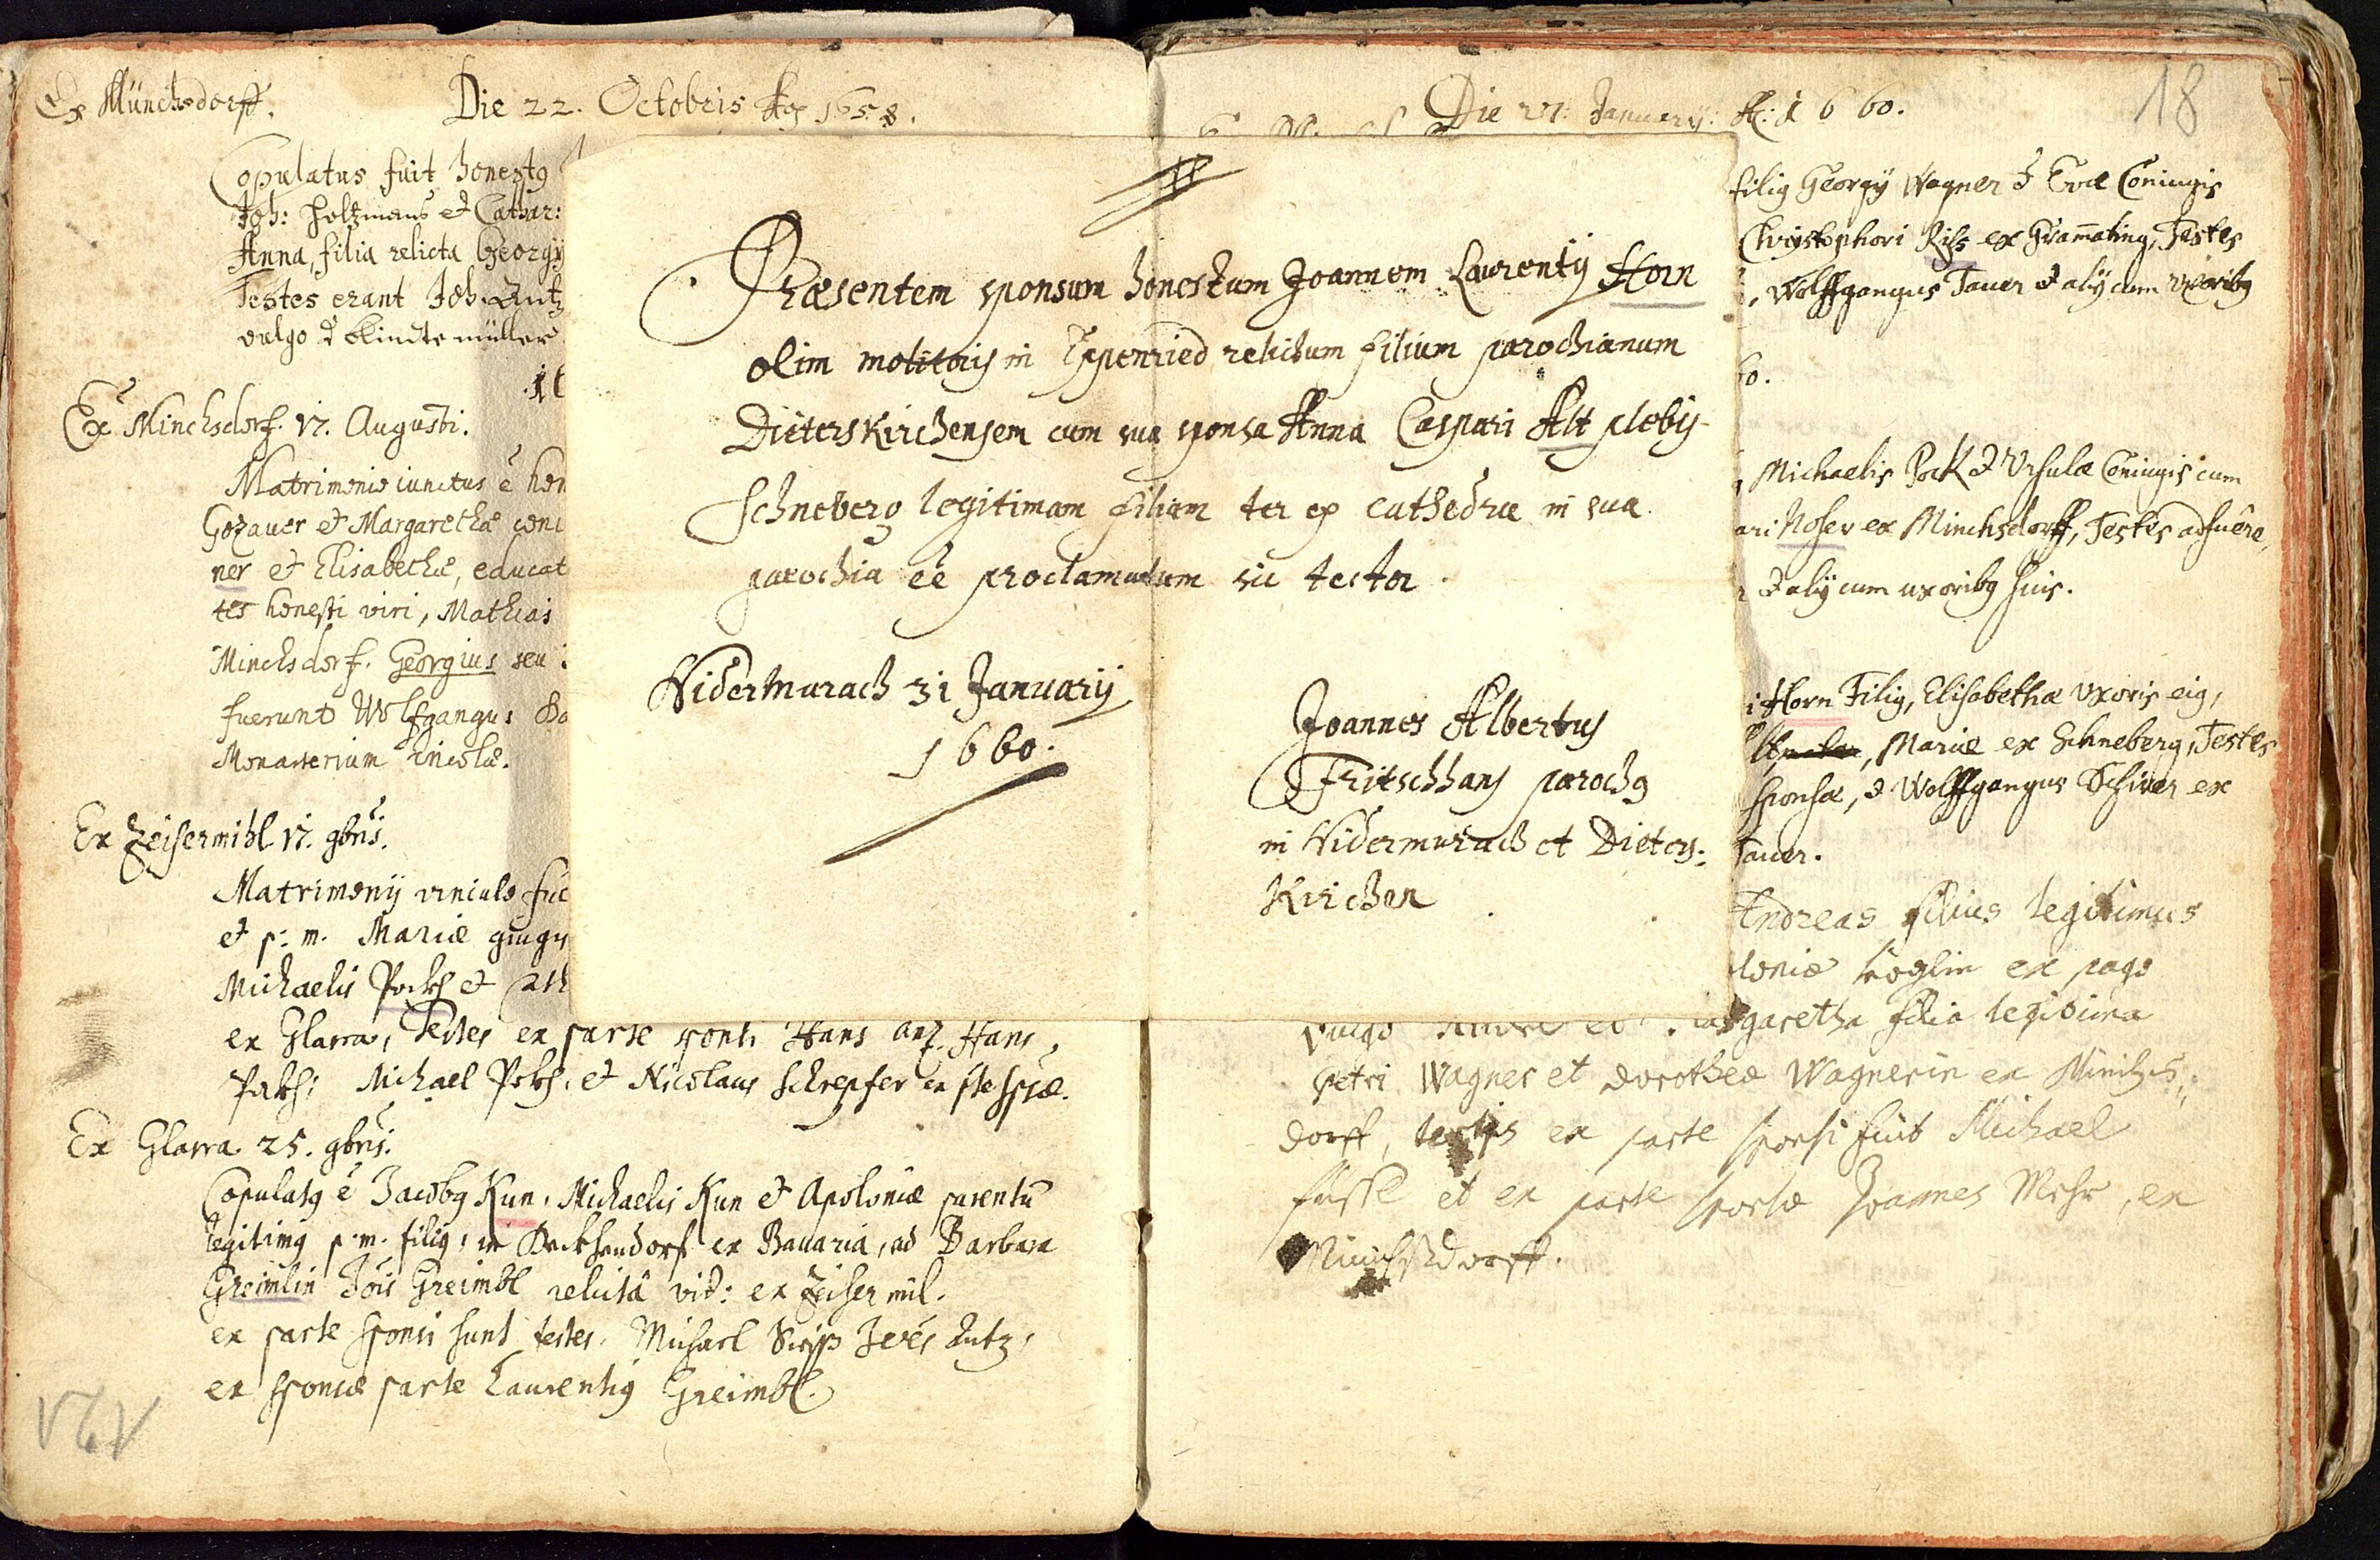 Ex Münchsdorff.
Die 22. Octobris Aō 1658.
Copulatus fuit honestg
Joh: Holtzmans et Cathar:
Anna, filia relicta Georgÿ
Testes erant Joh. Lutz
vulgo d blindte müller
Ex Minchsdorf. 17. Augusti.
Matrimonio iunctus ē hon
Gozauer et Margarethæ coni
ner et Elisabethæ, educat
tes honesti viri, Mathias
Minchsdorf. Georgius seu
fuerunt Wolfgangus
Monasterium incolæ.
Ex Zeisermihl 17. 9bris.
Matrimonÿ vinculo
et p: m. Mariæ
Michaelis Pockh et
ex Glarra, Testes ex parte sponsi Hans Hans
Pockh, Michael Pockh, et Nicolaus Schrepfer ex
Ex Glarra 25. 9bris.
Copulatg ē Jacobg Kun, Michaelis Kun et Apoloniæ parentū
legitimg p:m. filig, in Deckhendorf ex Bauaria, ad Barbara
Greimlin Jōis Greimbl relictā vid: ex Zeisermil.
ex parte sponsi sunt testes, Michael Lutz,
ex sponsæ parte Laurentig Greimbl.
Præsentem sponsum honestum Joannem Laurentÿ Horn
olim molitoris in Eppenried relictum filium parochianum
Dieterskirchensem cum sua sponsa Anna Caspari Alt plebis
Schneberg legitimam filiam ter ex cathedra in sua
parochia eē proclamatum sic testor.
Nidermurach 31 Januarÿ
1660.
Joannes Albertus
Fritschhans parochg
in Nidermurach et Dieters:
Kirchen
18
Die 27: Januarÿ: A: 1660.
filig Georgÿ Wagner et Evæ Coniugis
Christophori Riss ex Gramating, Testes
, Wolffgangus Tauer et alÿ cum uxoribg
60.
Michaelis Pock et Ursulæ Coniugis cum
ari Noser ex Minchsdorff, Testes adfuêre,
et alÿ cum uxoribg suis.
i Horn Filig, Elisabethæ Uxoris eig,
, Mariæ ex Schneberg, Testes
sponsæ, et Wolffgangus Schiver ex
Tauer.
Andreas filius legitimus
loniæ Koglin ex pago
vulgo et Margaretha filia legitima
Petri Wagner et Dorothea Wagnerin ex Minichs:
dorff, testis ex parte sponsi fuit Michael
et ex parte sponsæ Joannes Mehr, ex
Minichsdorff.